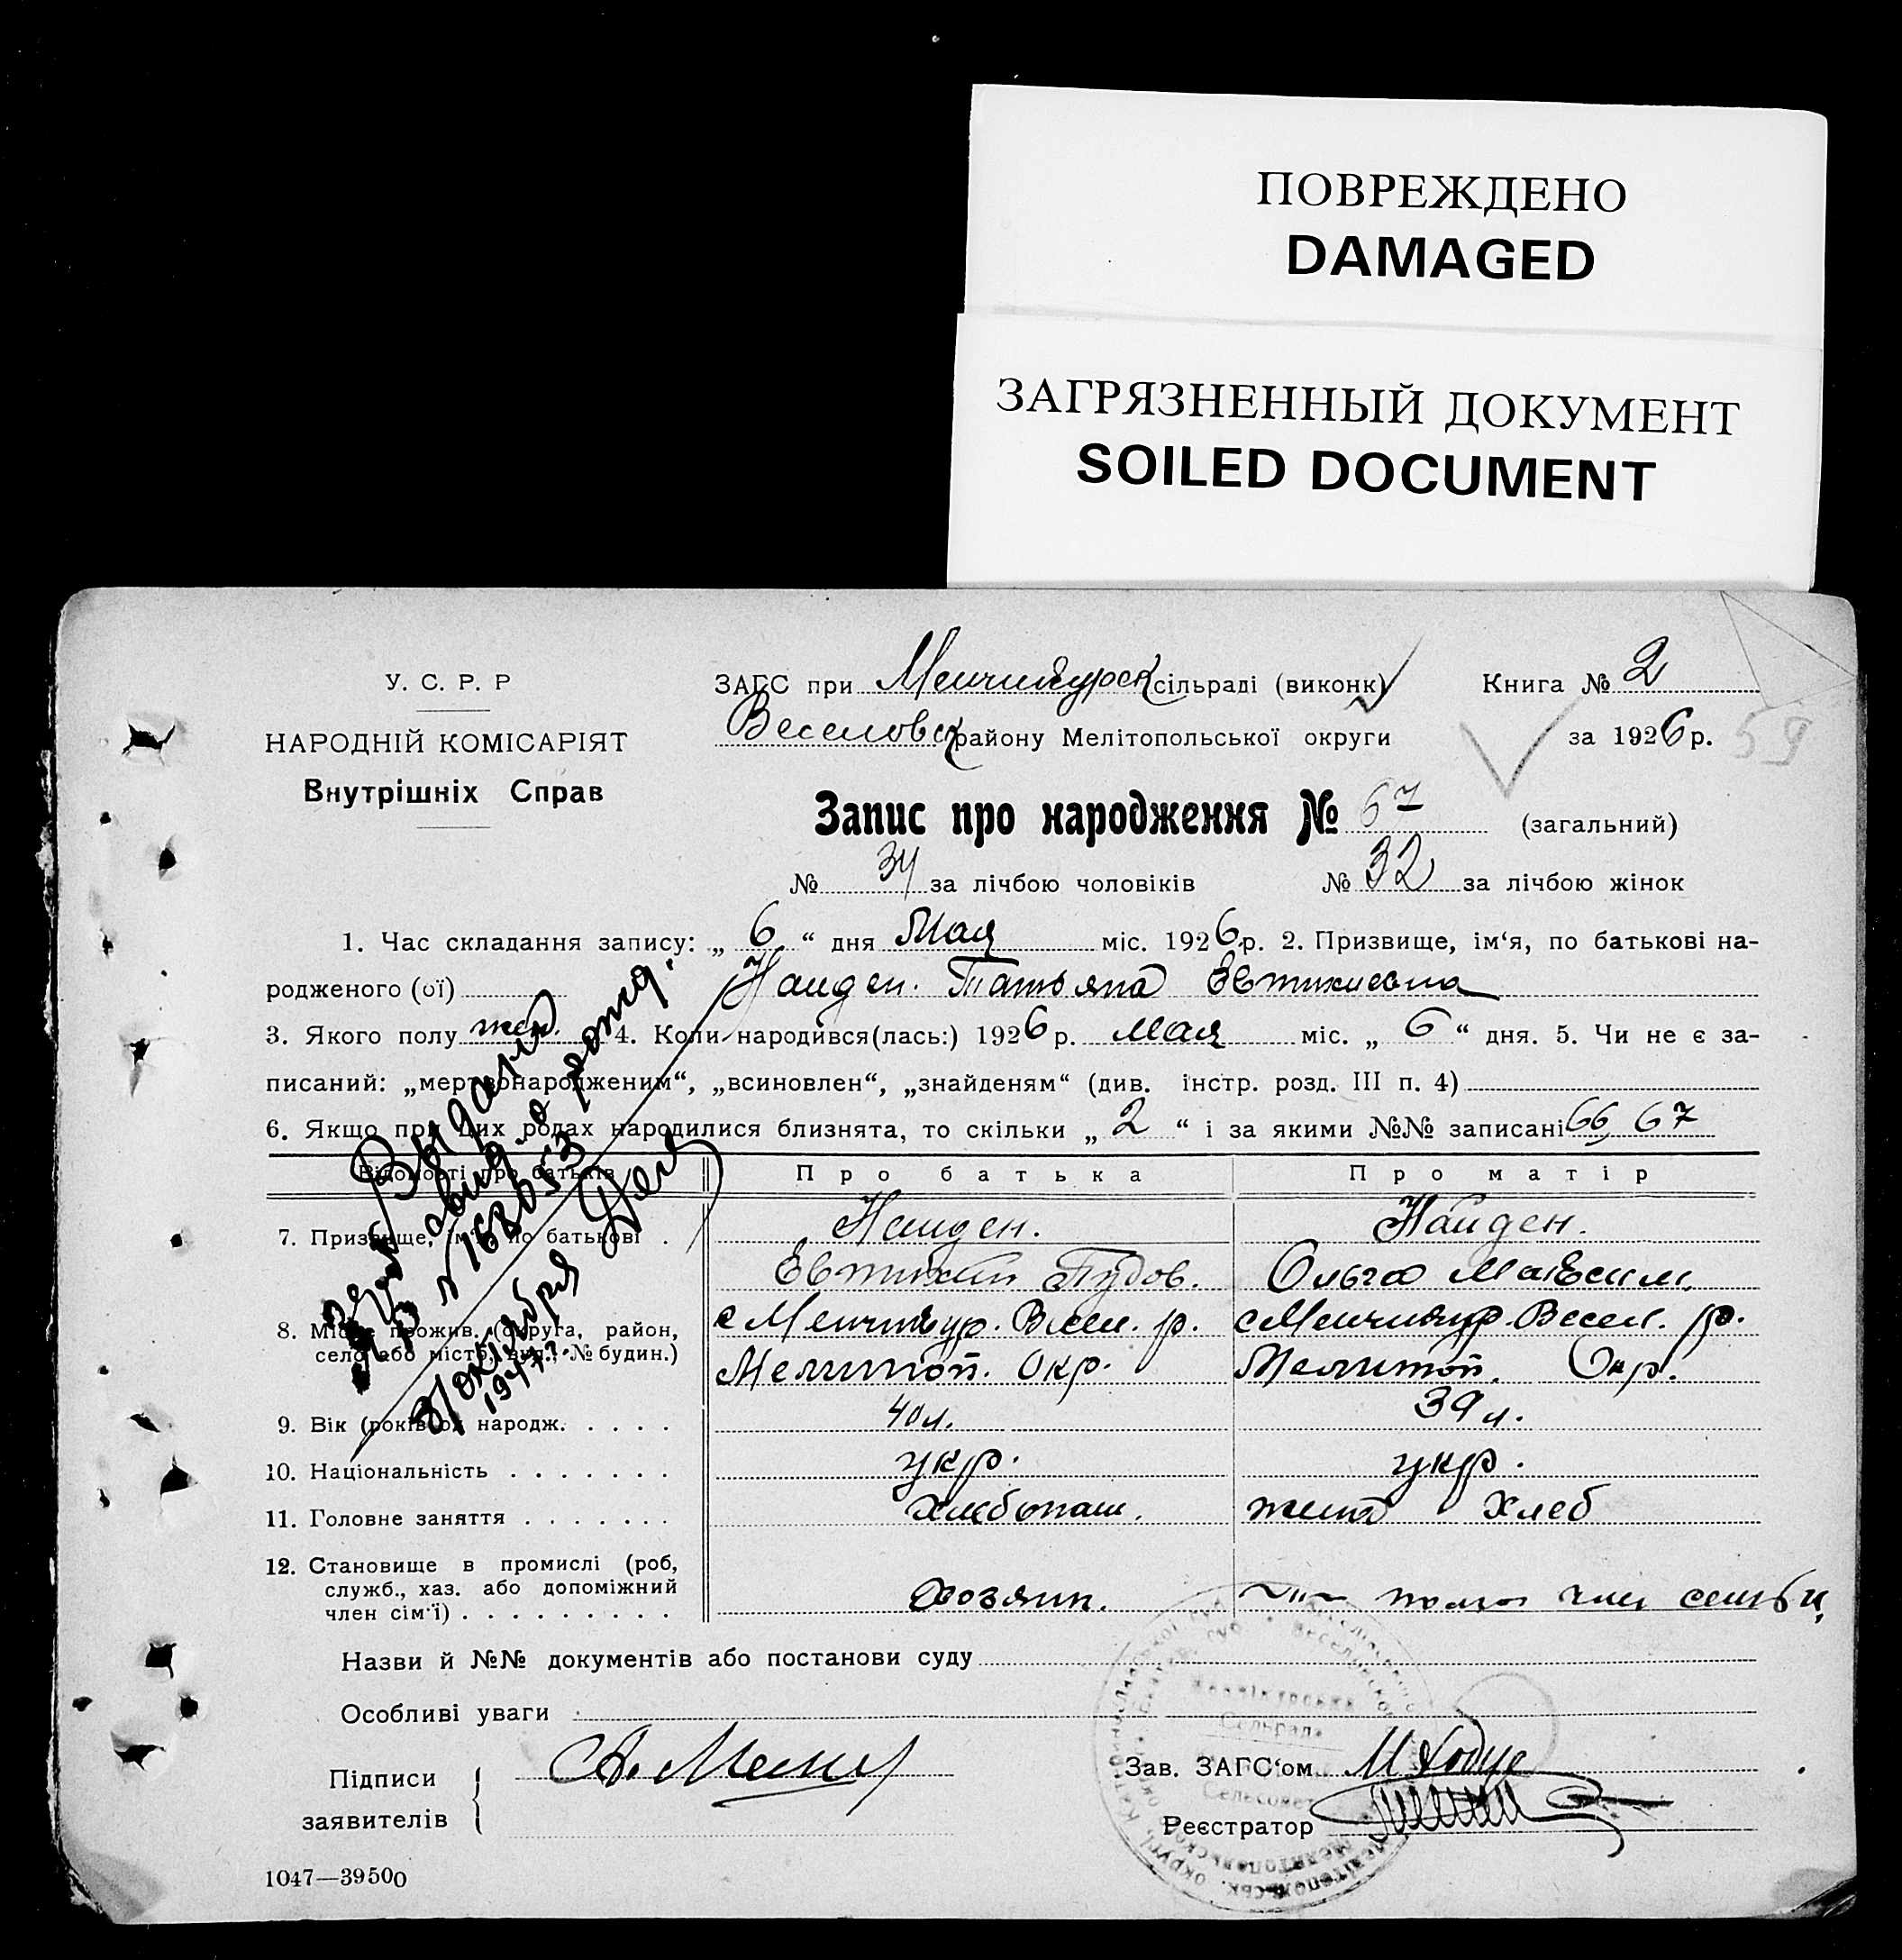 ПОВРЕЖДЕНО
DAMAGED
ЗАГРЯЗНЕННЫЙ ДОКУМЕНТ
SOILED DOCUMENT
У. С. Р. Р
НАРОДНІЙ КОМІСАРІЯТ
Внутрішніх Справ
ЗАГС при Менчикурск сільраді (виконк)
Книга № 2
Веселовск району Мелітопольської округи
за 1926 р.
59
Запис про народження № 67 (загальний)
№ 34 за лічбою чоловіків № 32 за лічбою жінок
1. Час складання запису: „ 6 “ дня Мая міс. 1926 р. 2. Призвище, ім‘я, по батькові на-
родженого (ої) Найден. Татьяна Евтихиевна
3. Якого полу жен. 4. Коли народився(лась:) 1926 р. Мая міс. „ 6 “ дня. 5. Чи не є за-
писаний: „мертвонародженим“, „всиновлен“, „знайденям“ (див. інстр. розд. III п. 4)
6. Якщо при цих родах народилися близнята, то скільки „ 2 “ і за якими №№ записані 66, 67
Відомості про батьків
Про батька
Про матір
7. Призвище, ім‘я, по батькові .
Найден.
Найден.
Евтихий Пудов.
Ольга Максим.
8. Місце прожив. (округа, район,
село або місто, вул., № будин.)
с Менчикур. Весел. р.
с Менчикур. Весел. р.
Мелитоп. Окр.
Мелитоп. Окр.
9. Вік (років) ох народж. . . . .
40 л.
39 л.
10. Національність . . . . . . .
укр.
укр.
11. Головне заняття . . . . . . .
Хлебопаш.
жена Хлеб
12. Становище в промислі (роб,
служб., хаз. або допоміжний
член сім‘ї) . . . . . . . . .
Хозяин.
член
Выдано
31 октября
1947г.
Назви й №№ документів або постанови суду
Особливі уваги
Підписи
заявителів
Зав. ЗАГС‘ом
Реєстратор
Сельрада
Сельсовет
1047—39500